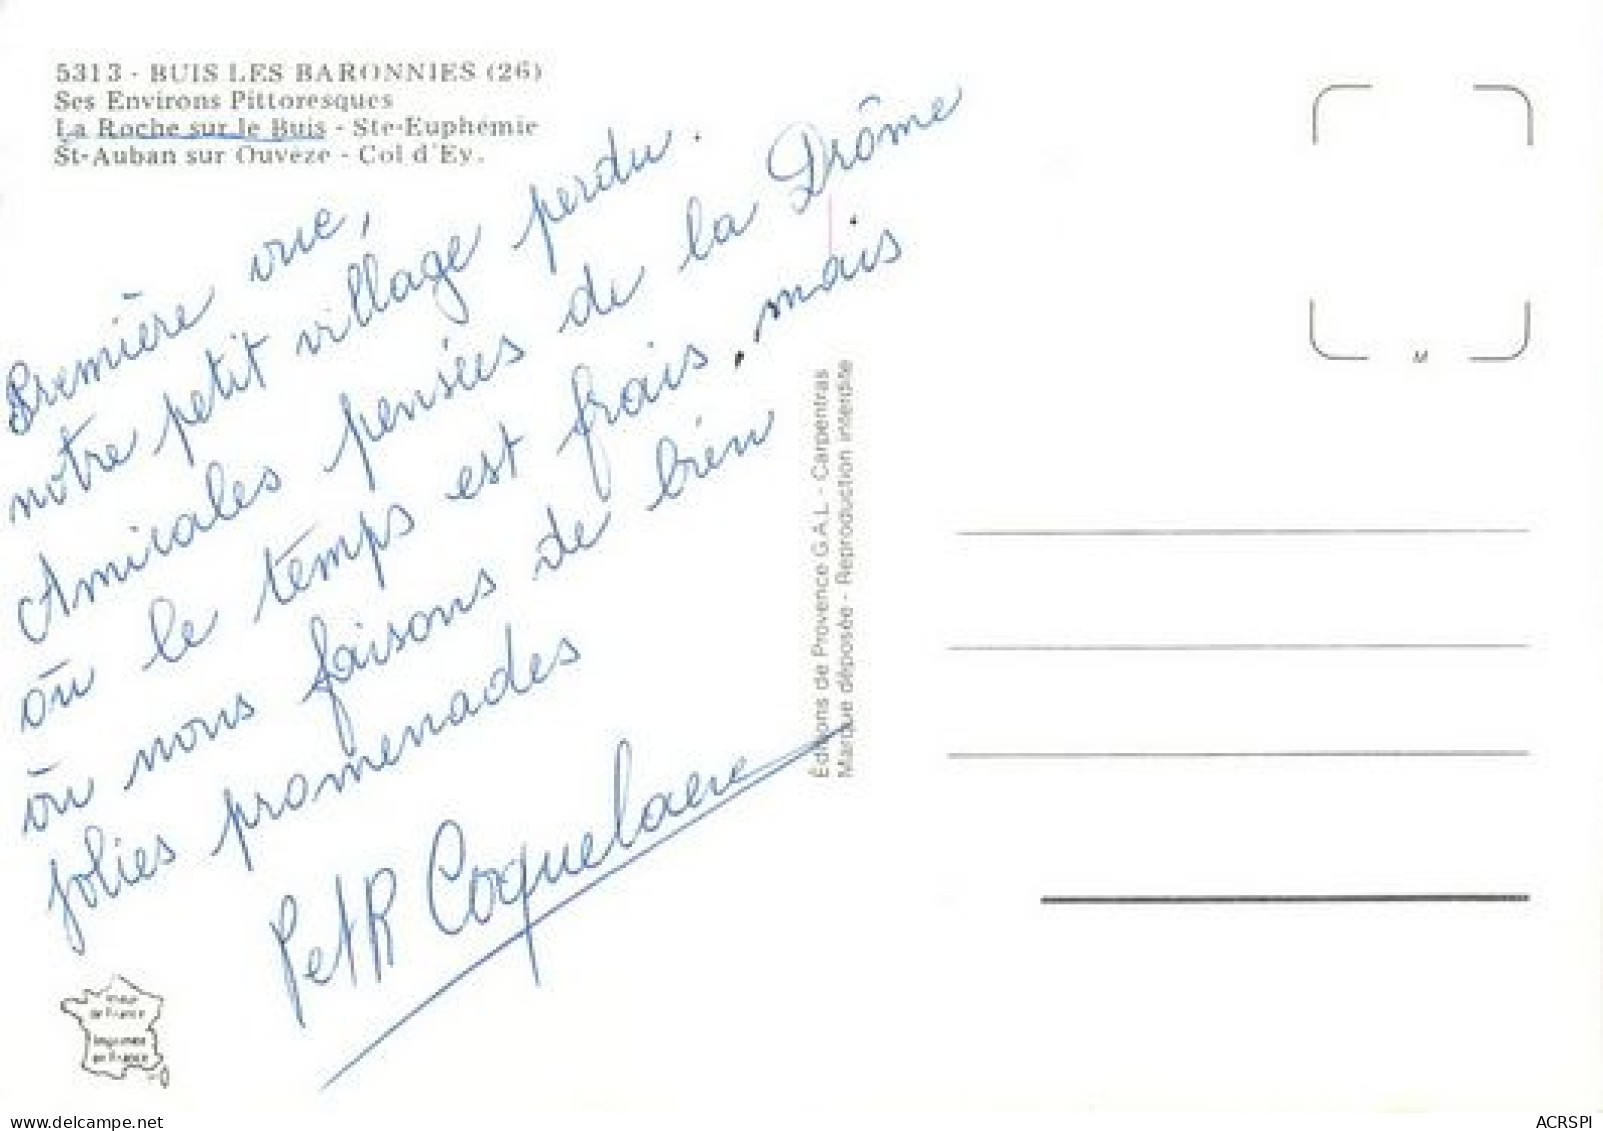 5313 - BUIS LES BARONNIES (26)
Ses Environs Pittoresques
La Roche sur le Buis - Ste-Euphémie
St-Auban sur Ouvèze - Col d'Ey.
Première vue,
notre petit village perdu.
Amicales pensées de la Drôme
où le temps est frais, mais
où nous faisons de bien
jolies promenades
P et R
Éditions de Provence G.A.L. - Carpentras
Marque déposée - Reproduction interdite
M
de France
Imprimée
en France
delcampe.net
ACRSPI